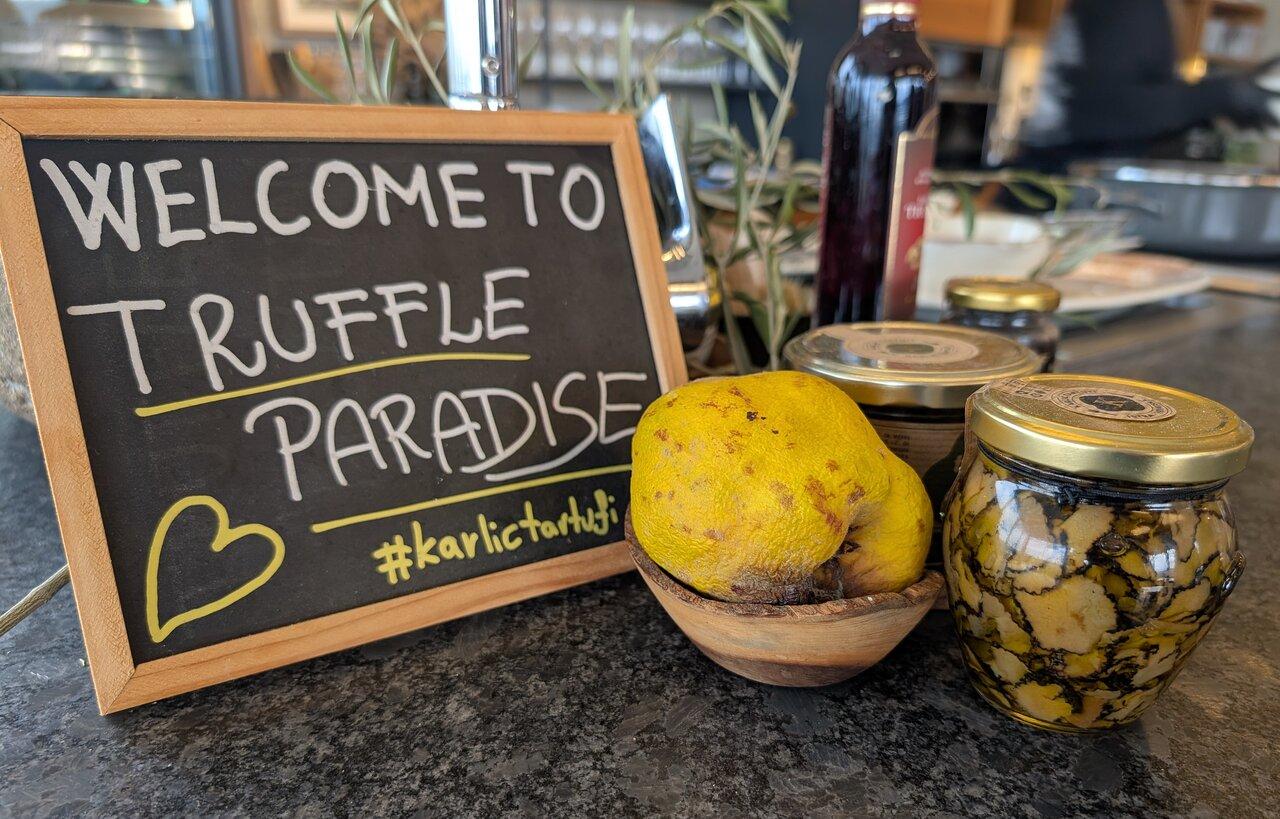 WELCOME TO
TRUFFLE
PARADISE
#karlictartufi